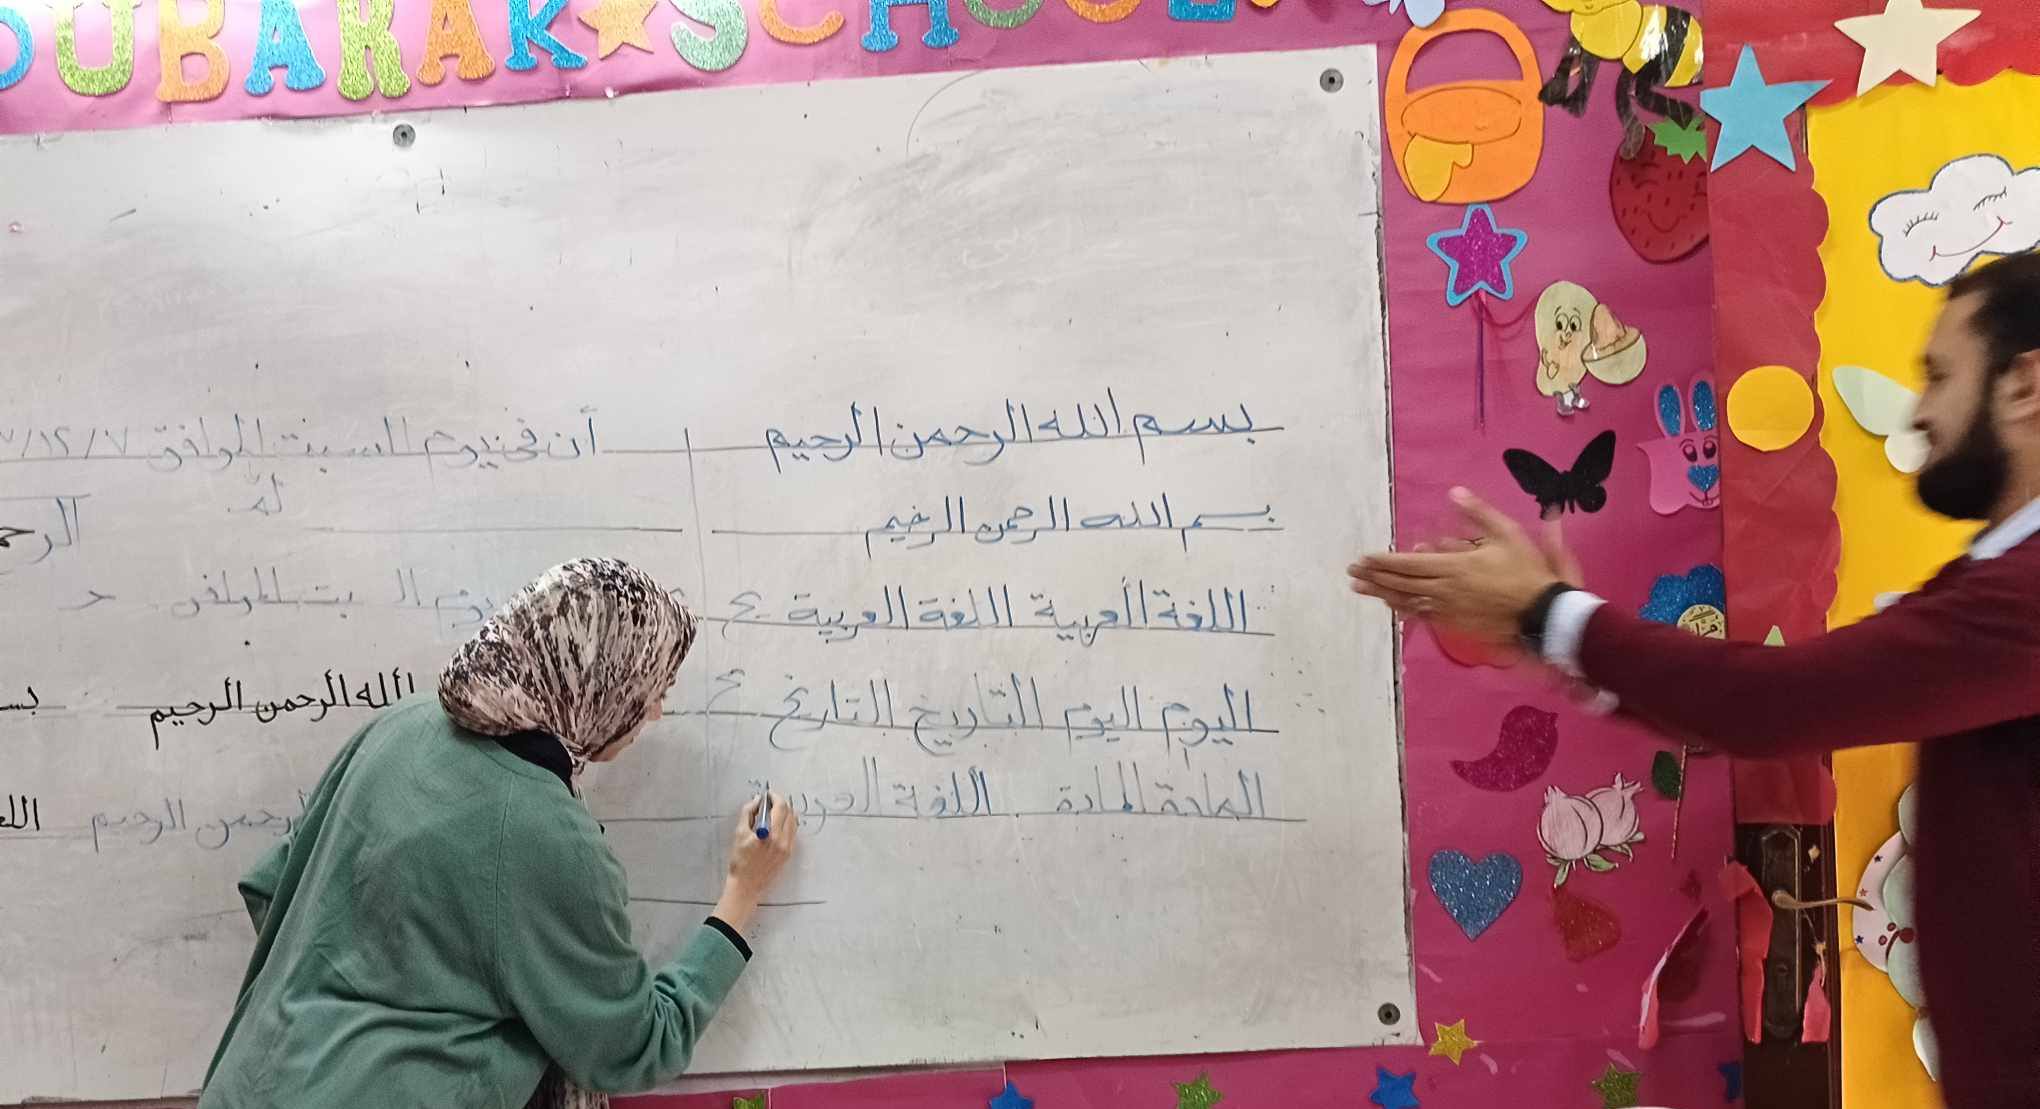 OUBARAK SCHOOL
بسم الله الرحمن الرحيم
بسم الله الرحمن الرحيم
اللغة العربية اللغة العربية ع
اليوم اليوم التاريخ التاريخ ع
المادة المادة اللغة العربية
أن في يوم السبت الموافق ٧/١٢/٧
الرح
الموافق
الله الرحمن الرحيم
بسـ
الرحمن الرحيم